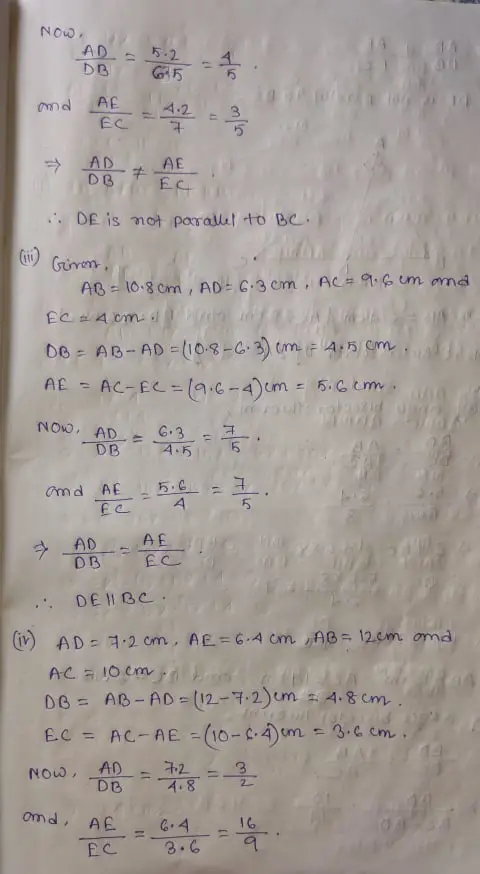 Now,
AD/DB = 5.2/6.5 = 4/5 .
and AE/EC = 4.2/7 = 3/5
⇒ AD/DB ≠ AE/EC .
∴ DE is not parallel to BC.
(iii) Given,
AB = 10.8 cm, AD = 6.3 cm, AC = 9.6 cm and
EC = 4 cm.
DB = AB - AD = (10.8 - 6.3) cm = 4.5 cm.
AE = AC - EC = (9.6 - 4) cm = 5.6 cm.
Now, AD/DB = 6.3/4.5 = 7/5 .
and AE/EC = 5.6/4 = 7/5 .
⇒ AD/DB = AE/EC .
∴ DE || BC.
(iv) AD = 7.2 cm, AE = 6.4 cm, AB = 12 cm and
AC = 10 cm.
DB = AB - AD = (12 - 7.2) cm = 4.8 cm.
EC = AC - AE = (10 - 6.4) cm = 3.6 cm.
Now, AD/DB = 7.2/4.8 = 3/2
and, AE/EC = 6.4/3.6 = 16/9 .